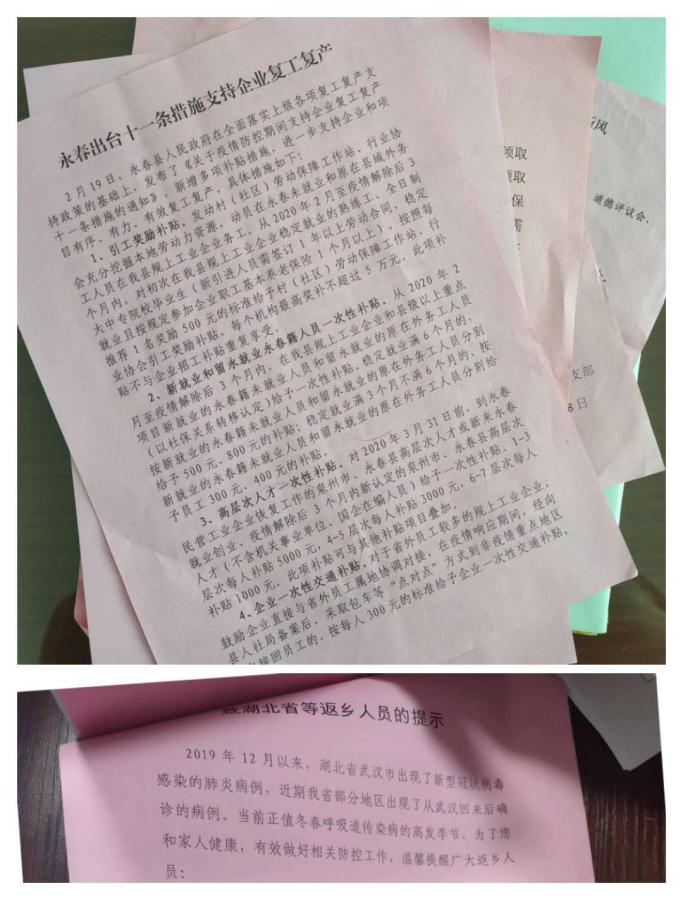 永春出台十一条措施支持企业复工复产
2月19日，永春县人民政府在全面落实上级各项复工复产支
持政策的基础上，发布了《关于疫情防控期间支持企业复工复产
十一条措施的通知》，新增多项补贴措施，进一步支持企业和项
目有序、有力、有效复工复产，具体措施如下：
1、引工奖励补贴。发动村（社区）劳动保障工作站、行业协
会充分挖掘本地劳动力资源，动员在永春未就业和原在县域外务
工人员在我县规上工业企业务工。从2020年2月至疫情解除后3
个月内，对初次在我县规上工业企业稳定就业的熟练工、全日制
大中专院校毕业生（新引进人员需签订1年以上劳动合同，稳定
就业且按规定参加企业职工基本养老保险1个月以上），按照每
推荐1名奖励500元的标准给予村（社区）劳动保障工作站、行
业协会引工奖励补贴，每个机构最高奖补不超过5万元。此项补
贴不与企业招工补贴重复享受。
2、新就业和留永就业永春籍人员一次性补贴。从2020年2
月至疫情解除后3个月内，在我县规上工业企业和县级以上重点
项目新就业的永春籍未就业人员和留永就业的原在外务工人员
（以社保关系转移认定）给予一次性补贴。稳定就业满6个月的，
按新就业的永春籍未就业人员和留永就业的原在外务工人员分别
给予500元、800元的补贴；稳定就业满3个月不满6个月的，按
新就业的永春籍未就业人员和留永就业的原在外务工人员分别给
予员工300元、400元的补贴。
3、高层次人才一次性补贴。对2020年3月31日前，到永春
民营工业企业恢复工作的泉州市、永春县高层次人才或新来永春
就业创业、疫情解除后3个月内新认定的泉州市、永春县高层次
人才（不含机关事业单位、国企在编人员）给予一次性补贴，1-3
层次每人补贴5000元，4-5层次每人补贴3000元，6-7层次每人
补贴1000元。此项补贴可与其他补贴项目叠加。
4、企业一次性交通补贴。对于省外员工较多的规上工业企业，
鼓励企业直接与省外员工属地协调对接，在疫情响应期间，经向
县人社局备案后，采取包车等“点对点”方式到非疫情重点地区
接回员工的，按每人300元的标准给予企业一次性交通补贴。
新风
道德评议会、
领取
领取
保
需
支部
8日
致湖北省等返乡人员的提示
2019年12月以来，湖北省武汉市出现了新型冠状病毒
感染的肺炎病例，近期我省部分地区出现了从武汉回来后确
诊的病例。当前正值冬春呼吸道传染病的高发季节，为了您
和家人健康，有效做好相关防控工作，温馨提醒广大返乡人
员：